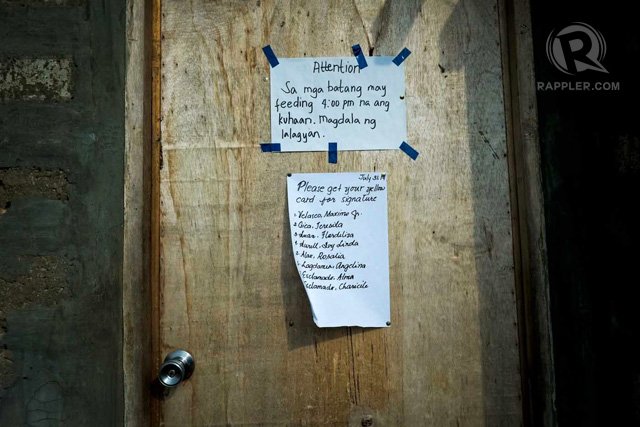 RAPPLER.COM
Attention
Sa mga batang may
feeding 4:00 pm na ang
kuhaan. magdala ng
lalagyan.
July
Please get your yellow
card for signature
1 Velasco, Maximo Jr.
Teresita
Flordiliza
Linda
Rosalia
Angelina
Esclamado,
Esclamado, Charicile